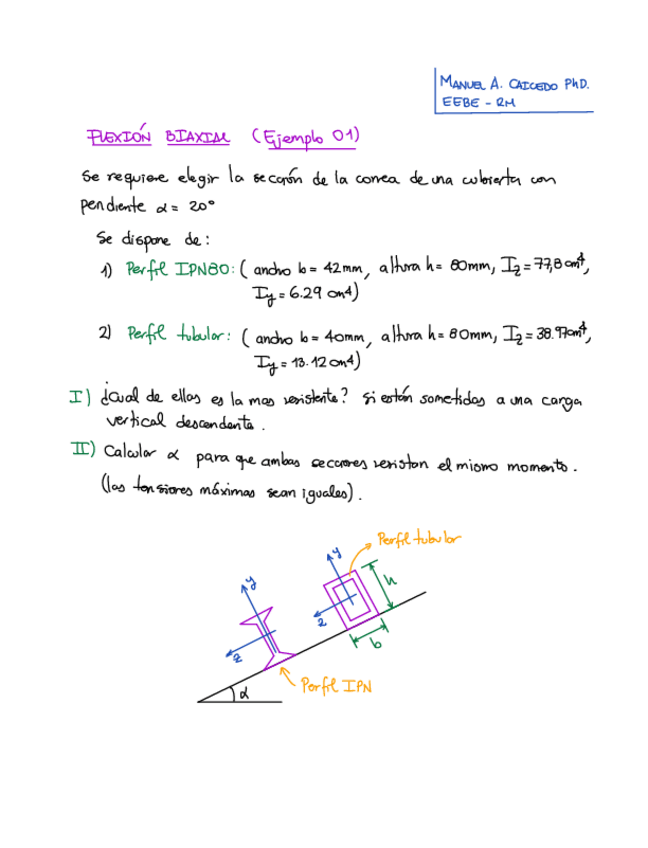 MANUEL A. CAICEDO PhD.
EEBE - RM
FLEXIÓN BIAXIAL (Ejemplo 01)
Se requiere elegir la sección de la correa de una cubierta con
pendiente α = 20°
Se dispone de:
1) Perfil IPN80: ( ancho b = 42mm, altura h = 80mm, Iz = 77,8 cm⁴,
Iy = 6.29 cm4)
2) Perfil tubular: ( ancho b = 40mm, altura h = 80mm, Iz = 38.97cm⁴,
Iy = 13.12 cm4)
I) ¿Cual de ellas es la mas resistente? Si están sometidas a una carga
vertical descendente.
II) Calcular α para que ambas secciones resistan el mismo momento.
(las tensiones máximas sean iguales).
Perfil tubular
y
h
y
z
b
z
Perfil IPN
α